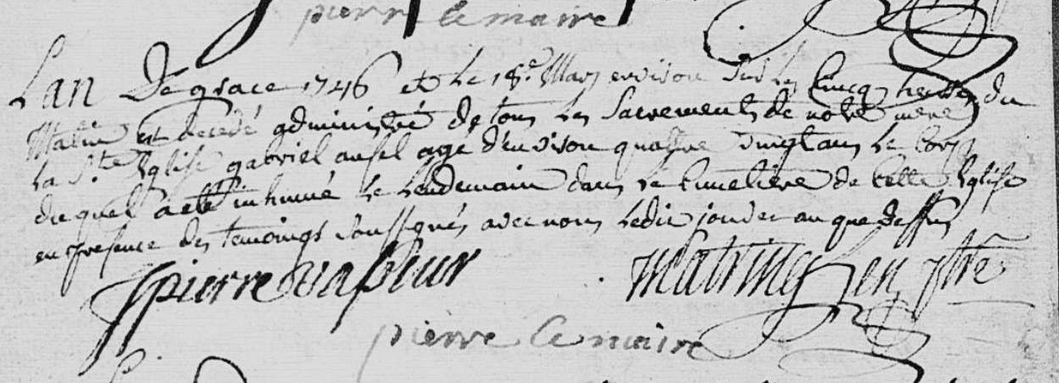 pierre le maire
Lan De grace 1746 et Le 18e Mars environ sur les Cincq heures du
Matin est decedé administré de tous les Sacrements de notre mere
la Ste Eglise gabriel ansel agé d'environ quattre vingt ans le Corps
du quel a été inhumé le lendemain dans le Cimetiere de cette Eglise
en presence des temoings soussignés avec nous ledit jour et an que dessus
pierre vasseur
pierre le maire